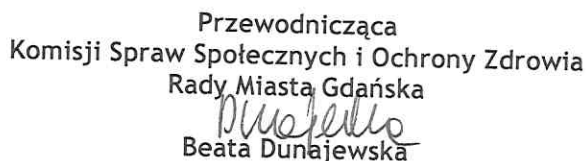 Przewodnicząca
Komisji Spraw Społecznych i Ochrony Zdrowia
Rady Miasta Gdańska
Beata Dunajewska